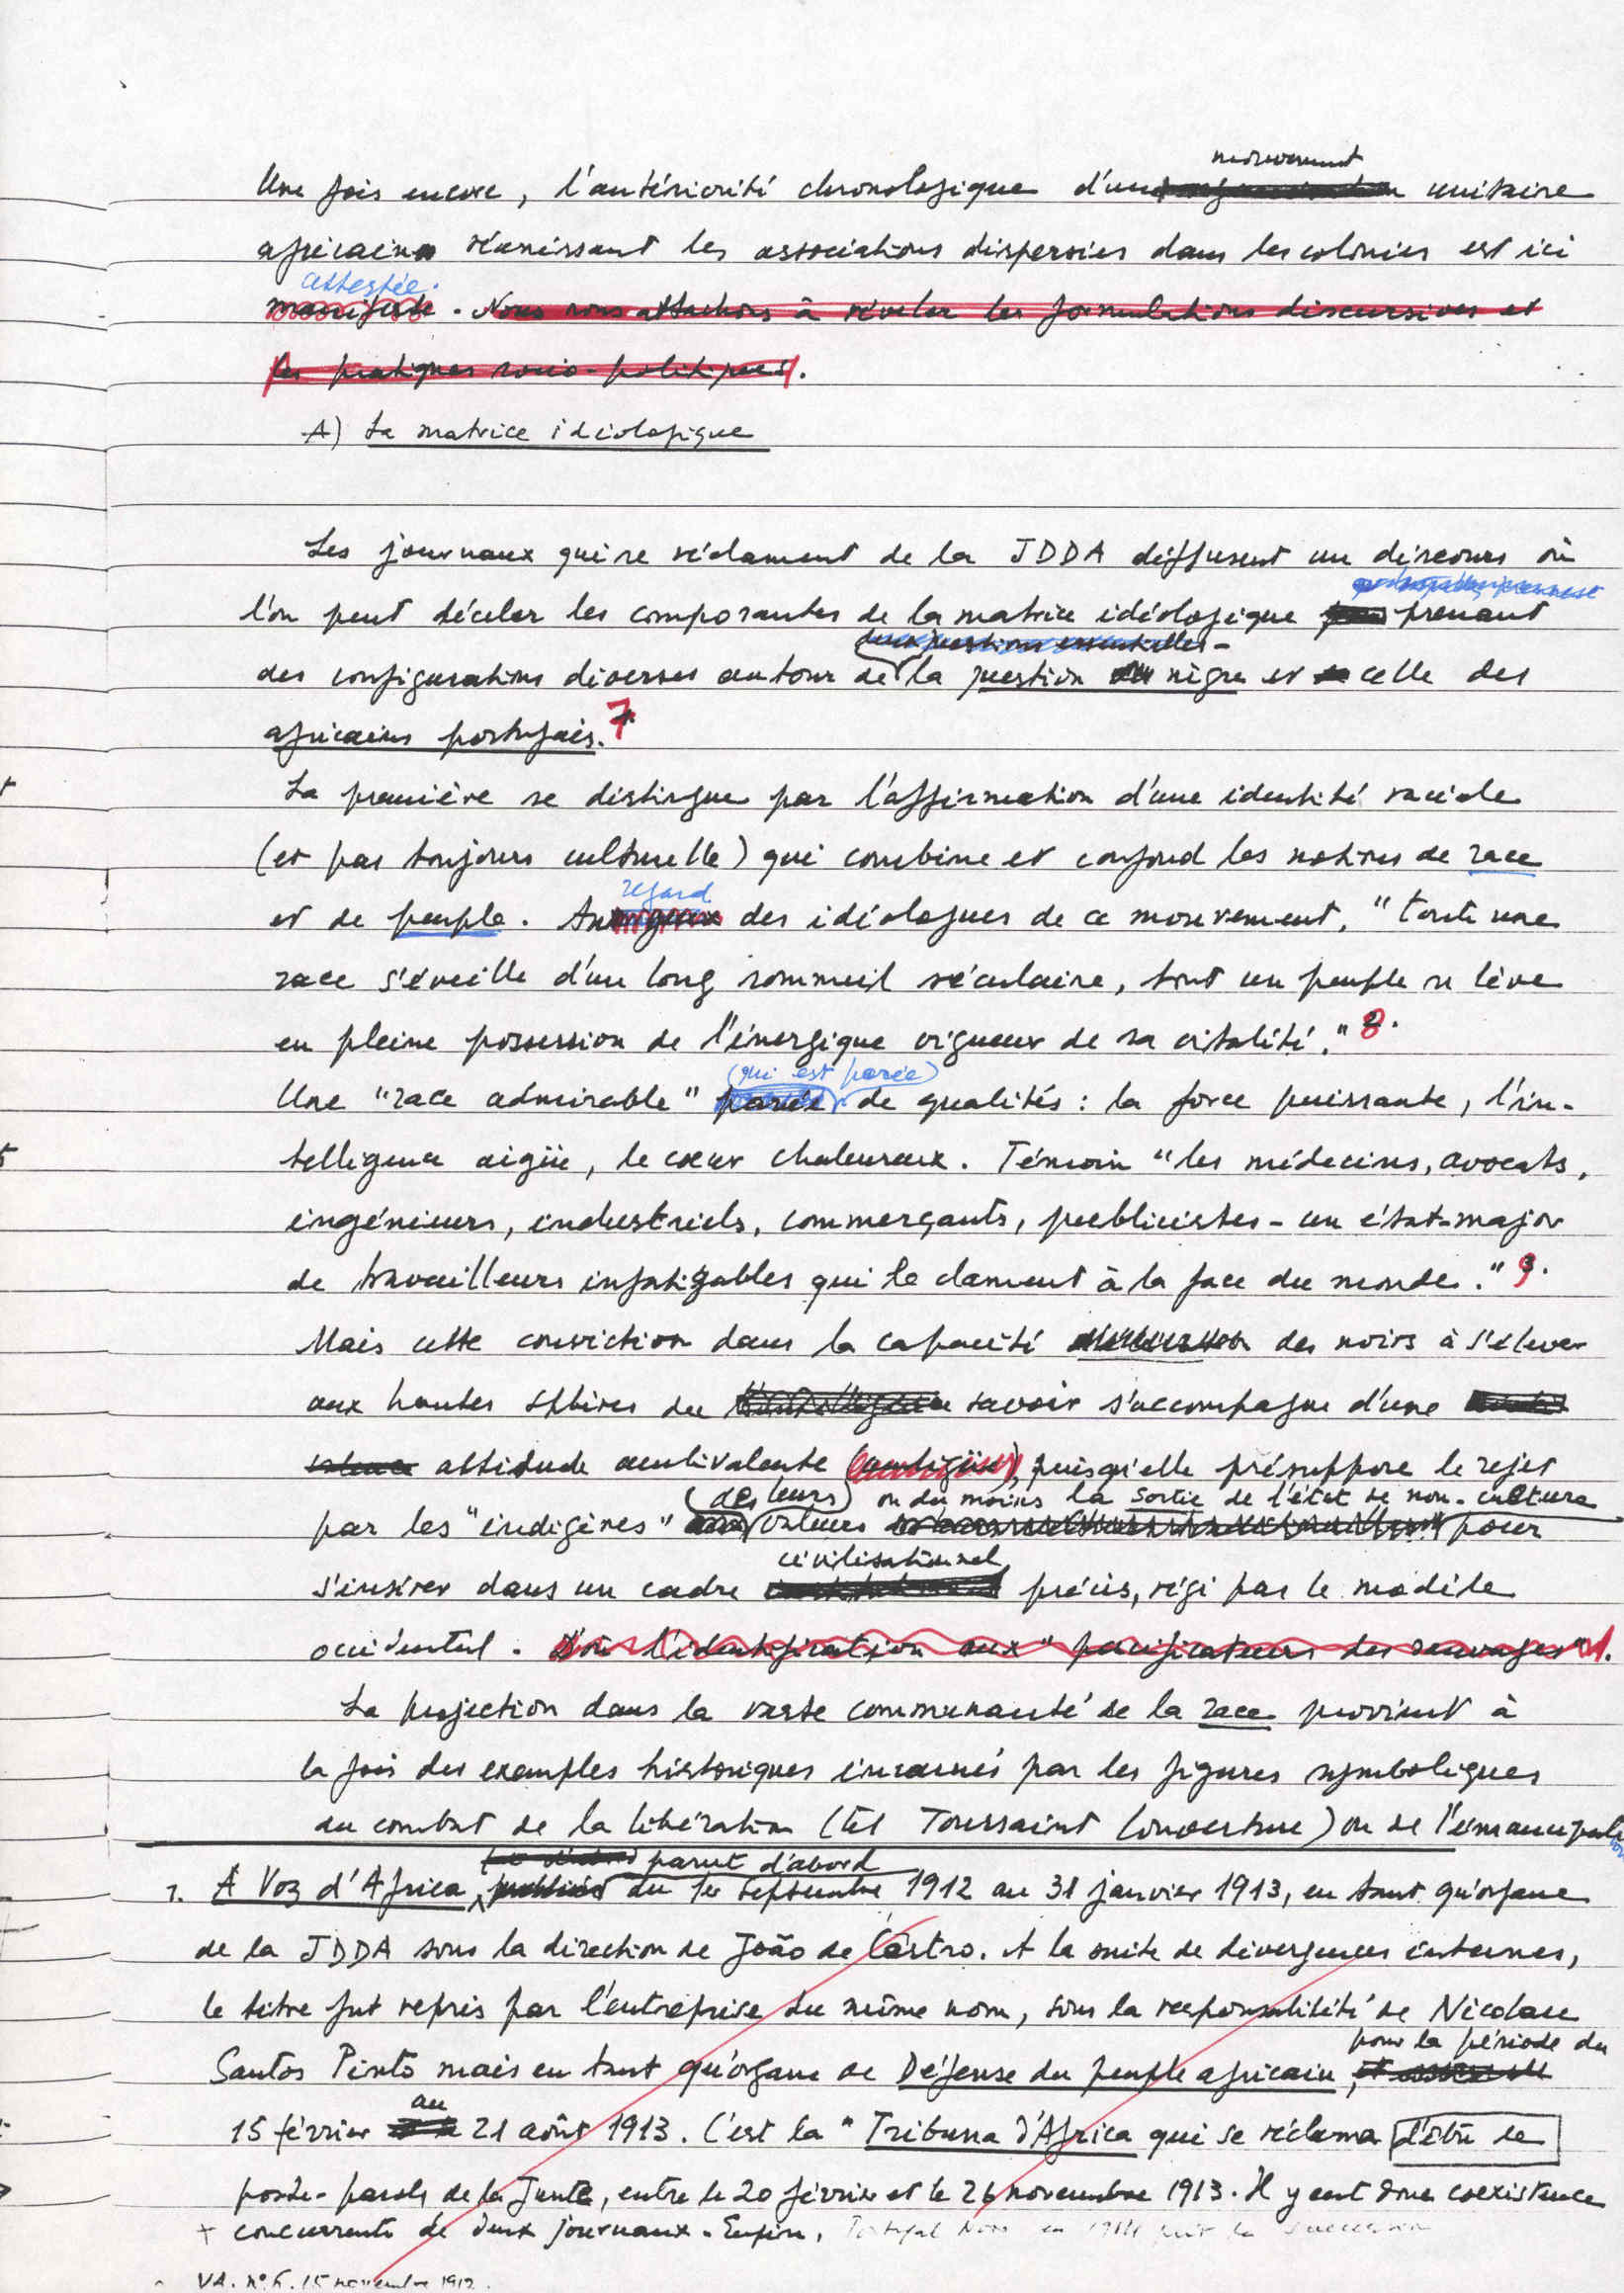 mouvement
Une fois encore, l'antériorité chronologique d'un unitaire
africain réunissant les associations dispersées dans les colonies est ici
attestée.
manifeste. Nous nous attachons à révéler les formulations discursives et
les pratiques socio-politiques.
A) La matrice idéologique
Les journaux qui se réclament de la JDDA diffusent un discours où
l'on peut déceler les composantes de la matrice idéologique prenant
deux questions essentielles -
des configurations diverses autour de la question nègre et celle des
africains portugais. 7
La première se distingue par l'affirmation d'une identité raciale
(et pas toujours culturelle) qui combine et confond les notions de race
regard
et de peuple. Au des idéologues de ce mouvement, "toute une
race s'éveille d'un long sommeil séculaire, tout un peuple se lève
en pleine possession de l'énergique vigueur de sa vitalité." 8.
(qui est parée)
Une "race admirable" parée de qualités : la force puissante, l'in-
telligence aigüe, le cœur chaleureux. Témoin "les médecins, avocats,
ingénieurs, industriels, commerçants, publicistes - un état-major
de travailleurs infatigables qui le clament à la face du monde." 9.
Mais cette conviction dans la capacité des noirs à s'élever
aux hautes sphères du savoir s'accompagne d'une
attitude ambivalente (ambigüe), puisqu'elle présuppose le rejet
(de leurs) ou du moins la sortie de l'état de non-culture
par les "indigènes" valeurs pour
civilisationnel
s'insérer dans un cadre précis, régi par le modèle
occidental. D'où l'identification aux "pacificateurs des sauvages".
La projection dans la vaste communauté de la race provient à
la fois des exemples historiques incarnés par les figures symboliques
du combat de la libération (tel Toussaint Louverture) ou de l'émancipation
parut d'abord
1. A Voz d'Africa, publiée du 1er septembre 1912 au 31 janvier 1913, en tant qu'organe
de la JDDA sous la direction de João de Castro. A la suite de divergences internes,
le titre fut repris par l'entreprise du même nom, sous la responsabilité de Nicolau
pour la période du
Santos Pinto mais en tant qu'organe de Défense du peuple africain,
au
15 février 21 août 1913. C'est la "Tribuna d'Africa qui se réclama d'être le
porte-parole de la Junte, entre le 20 février et le 26 novembre 1913. Il y eut donc coexistence
+ concurrente de deux journaux. Enfin, Portugal Novo en la succession
VA. nº 6. 15 novembre 1912.